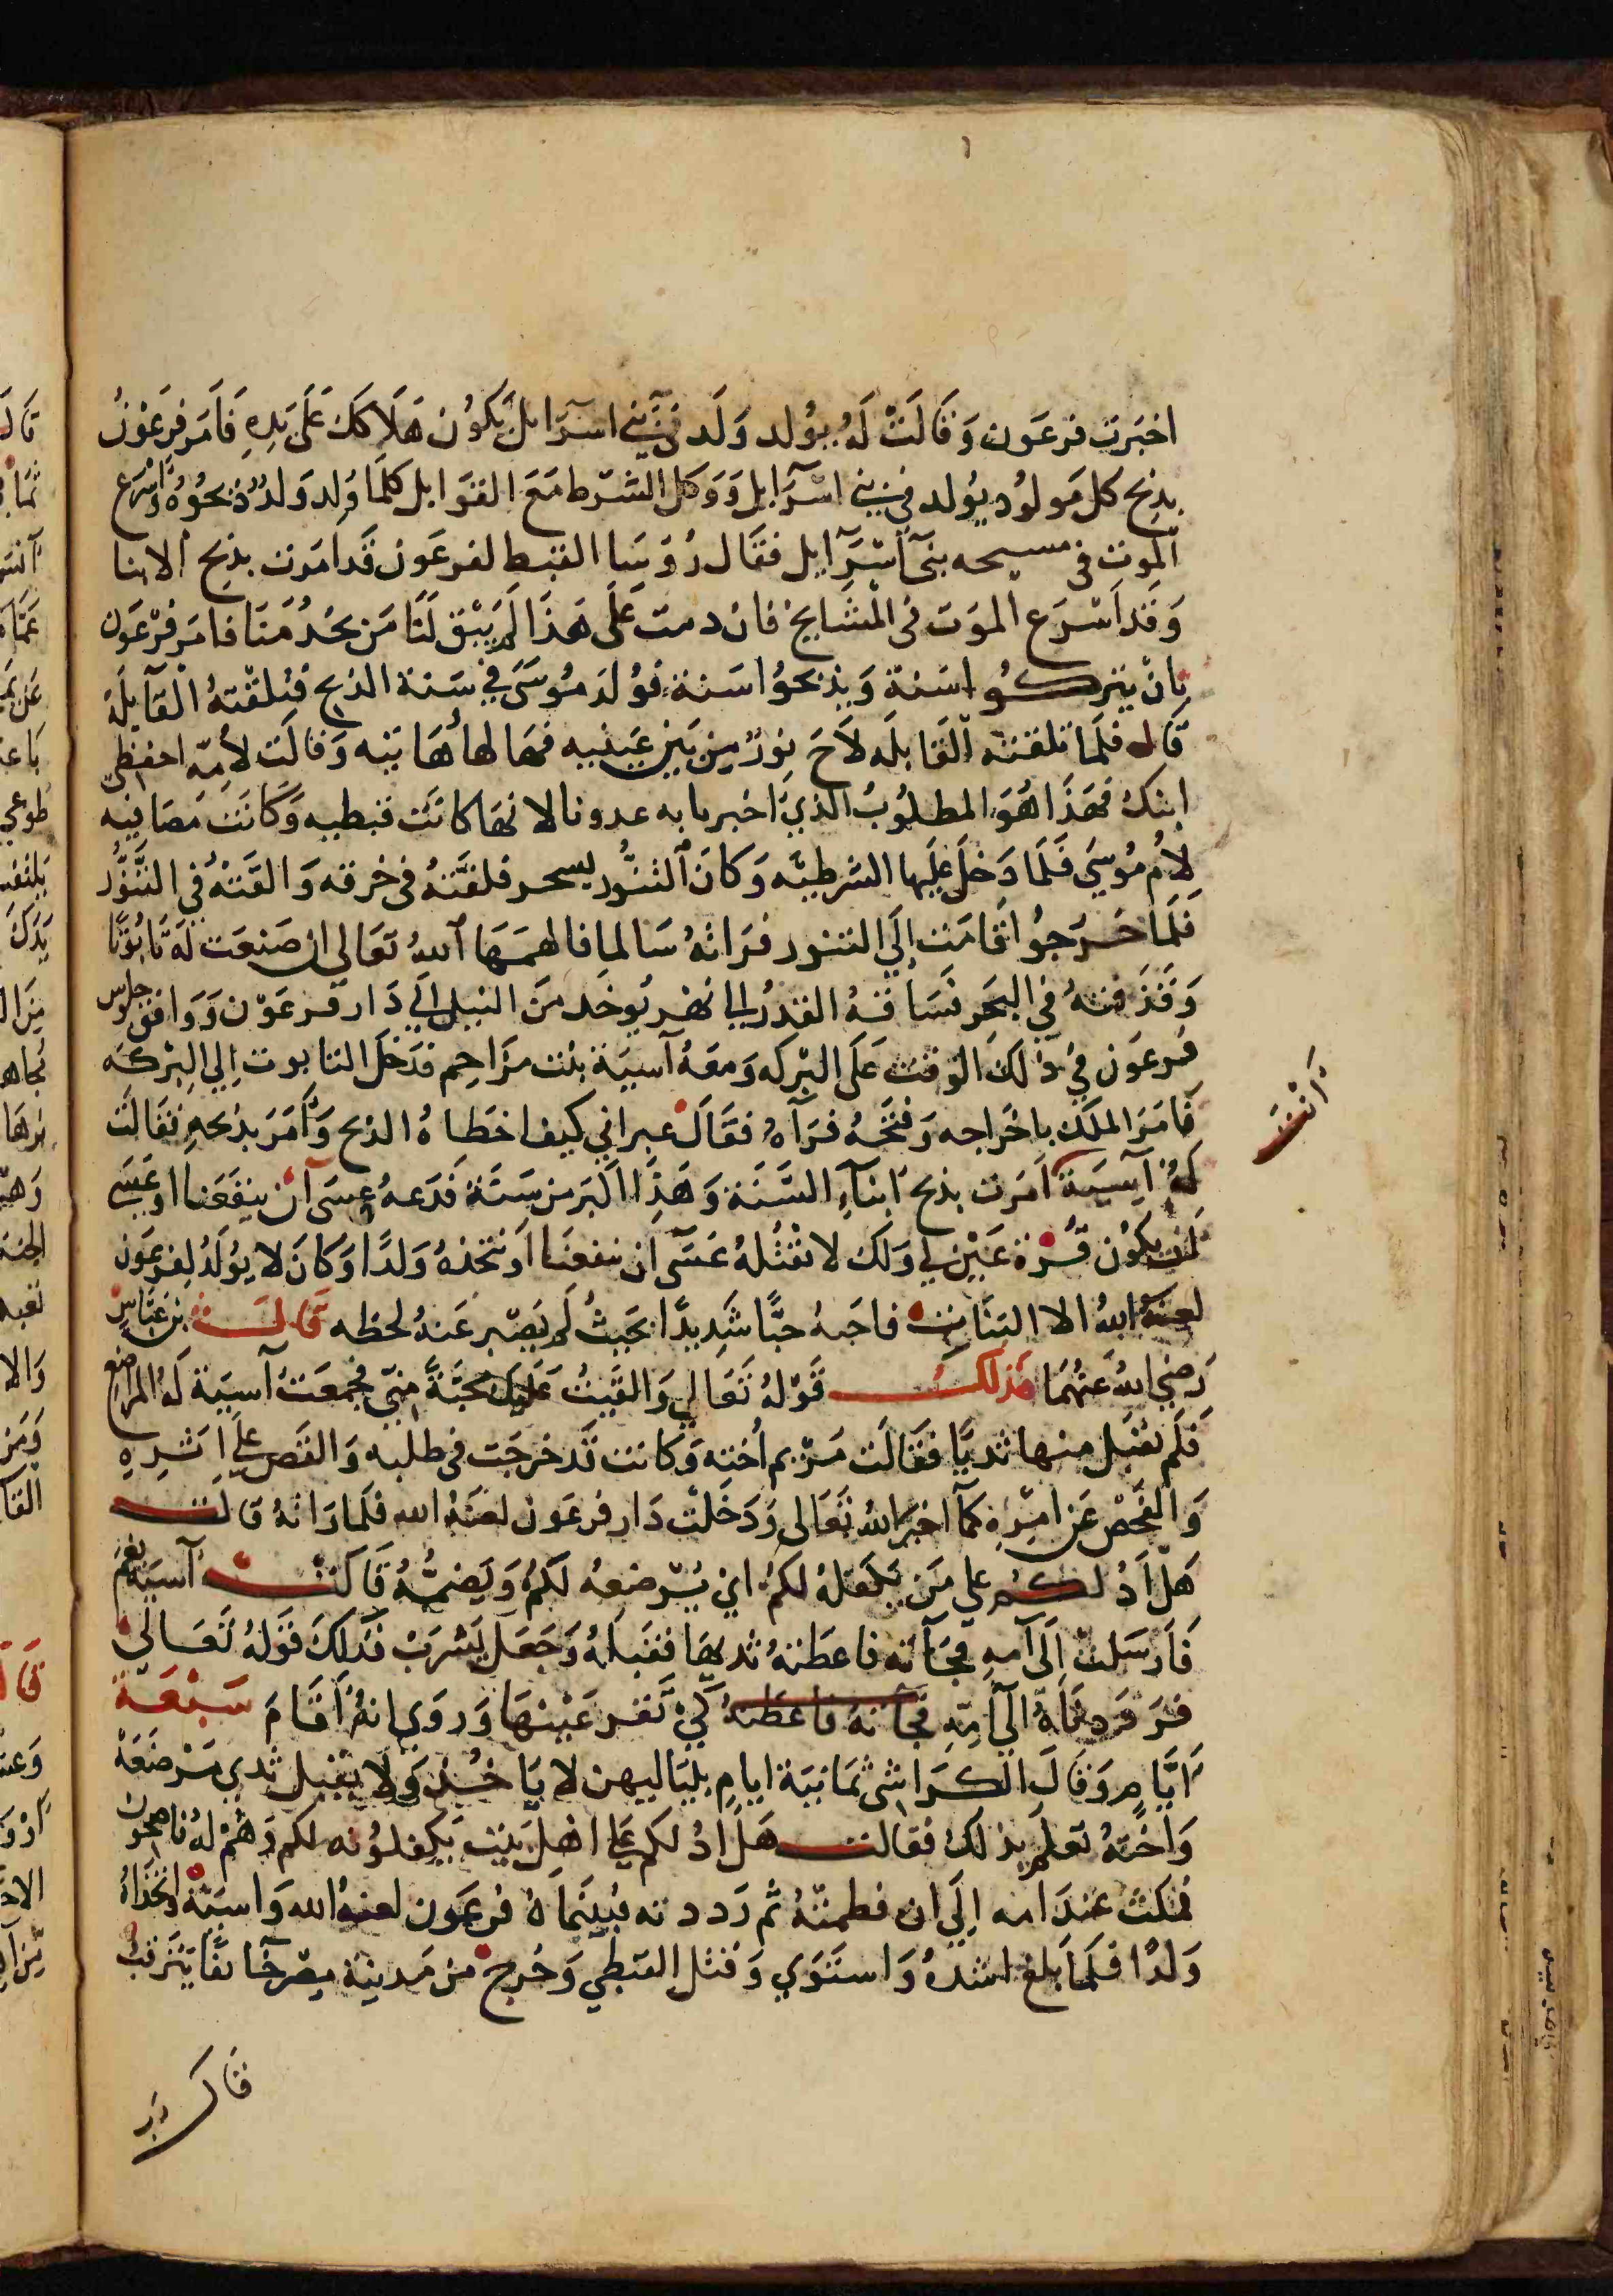 اخبَرت فرعَون وَقَالَتْ لَهُ يوُلد وَلَد في بَني اسرَايل يَكوُن هَلَاكك عَلَى يَدِهِ فَأمَر فِرعَوْنُ
بذبح كل مَولوُد يوُلد في بني اسْرَايل وَوَكل الشرط مَعَ القوَابل كلمَا وُلد وَلدٌ ذبحُوُهُ وَاسْرَع
الموت في مسيحه بني آسْرَايل فقَال رُؤسَا القبط لفرعَون قَد امَرت بذبح الابنا
وَقَد اسْرَع الموَت في المشَايخ فان دمت عَلَى هَذَا لَمْ يَبْق لَنَا مَن يخدُمنَا فامَر فرْعَون
بِانْ يتركوُا سَنة وَيذبحوُا سَنة فوُلدَ مُوسَى في سَنة الذبح فتلقّتهُ القَابلَة
قَال فلمَا تلقته القَابلَه لاَحَ نورٌ مِن بَين عَينيه فهَالهَا هَايته وَقالَت لأمّهِ احفظي
ابنكُ فهَذَا هُوَ المطلوُبُ الذي اخبرنا به عدونا لانهَا كانَت قبطيه وَكانَت مصَافيه
لِأم مُوسَى فَلمَا دَخَلَ عَليها الشرطيّه وَكانَ التنُّور يسحر فلفَّتهُ في خرقه وَالقَتهُ في التنُّور
فَلمَا خَرَجوُا قامَت إلَي التنور فرَاتهُ سَالما فالهمَهَا اللهُ تعَالي ان صَنعَت لَه تابُوتًا
وَقَذفتهُ في البَحَر فسَاقهُ القدرُ الي نهر يوُخَد منَ النيل الَي دَار فرعَوْن وَوَافق جلوس
فرعَون في ذَلكَ الوَقت عَلَى البرْكه وَمعَهُ آسيَة بنت مزَاحِم فدَخَلَ التابوت اِلي البرْكه
فَامَرَ الملَك بِاخرَاجه وَفتحَهُ فرَآهُ فقَالَ عبراني كيف اخطاهُ الذبح وَأمَرَ بذبحهِ فقَالَت
لَهُ آسيَة امَرت بذبح ابنآءِ السَّنَة وَهَذَا اكبر من سَنَة فَدَعهُ عسَى ان ينفَعَنا اوعَسَى
ان يكوُن قُرة عَيْن لي وَلك لا تقتُلهُ عَسَى ان ينفعنَا اوَ نتخذهُ وَلدًا وَكانَ لا يوُلَدُ لِفرعَون
لعنهُ اللهُ الا البنَات فاحَبهُ حبًّا شَدِيدًا بحَيثُ لَم يَصْبر عَنهُ لحظه قَالَ بن عَبّاس
رَضيَ اللهُ عَنهُمَا فذلكَ قَوْلهُ تَعَالي وَالقَيتُ عَليك مَحبَّةً منّي فجمعَتْ آسيَة لَهُ المرَاضع
فَلَم يقبَل منها ثديًا فقَالَت مَرْيم أخته وَكانت قَد خرجَت في طلبه وَالقَصّ عَلَى اثرِهِ
وَالفَحْص عَن امْرِهِ كمَا اخبرَ اللهُ تعَالى وَدَخَلَتْ دَار فرعَون لعنَهُ الله فلمَا رَاتهُ قالت
هَلْ ادُلكمُ علي مَن يكفلهُ لكمُ اي يُرْضِعهُ لكمُ وَيَضمُّهُ قَالَت آسيَة نعَم
فَارسَلَتْ اِلَى امهِ فجَآته فاعطَتهُ ثديهَا فقبَلهُ وَجَعَل يَشرَبُ فذَلكَ قوَلهُ تعَالى
فرَ فرَددنَاهُ اِلَى أمّهِ فجآتهُ فاعطتهُ كَيْ تقر عَيْنهَا وَرُويَ انهُ أقَامَ سَبْعَة
اَيَّام وَقَالَ الكرَاشى ثمَانيَة ايام بليَاليهن لا يَاخُذ وَلا يقبل ثدي مَرْضعَة
وَاختهُ تعلم بذلك فقالت هَل ادُلكم عَلى اهْل بَيت يَكفلوُنه لكم وَهُمْ لهُ ناصحون
فمكثَ عندَ امه إلَى ان فطمتْهُ ثم رَددته فبينمَاهُ فرعَون لعنهُ الله وَاسيَة اتخذَاهُ
وَلدًا فَلمَا بَلغَ اشدهُ وَاستَوَي وَقتل القبطي وَخُرج من مَدينة مِصْر خَآئفًا يَتَرَقبُ
قَال رَبّ